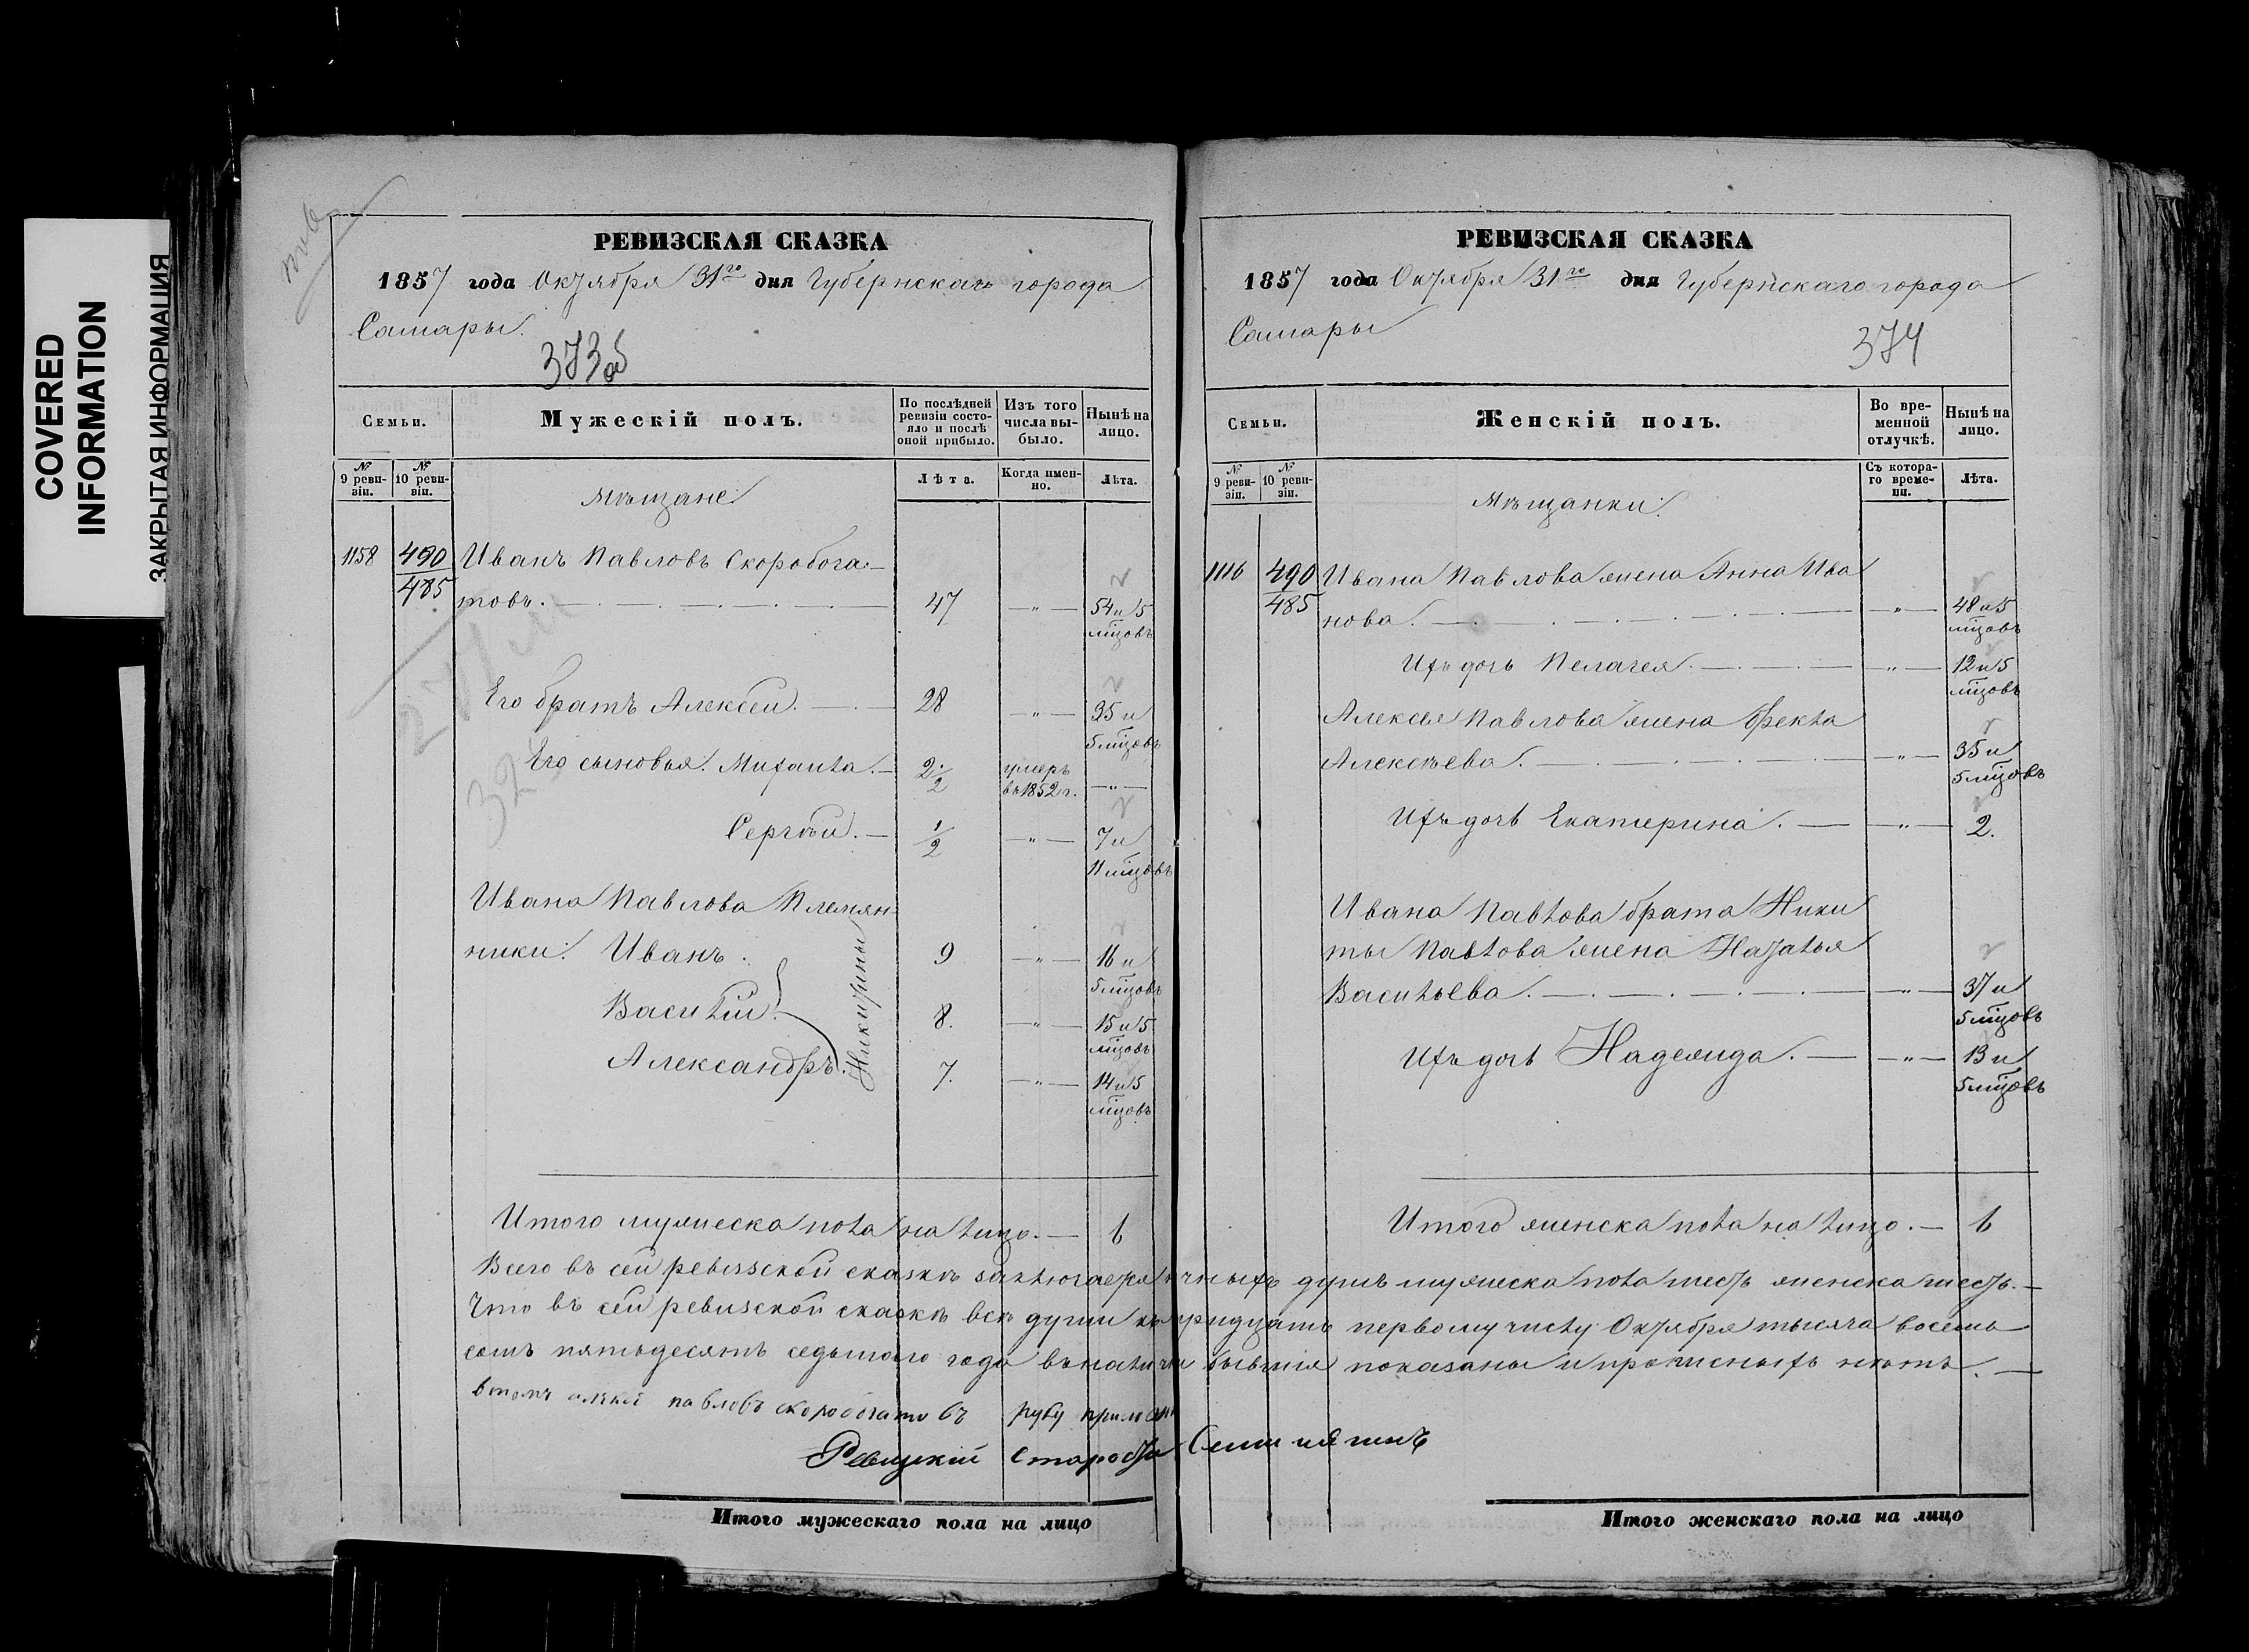 COVERED
INFORMATION
ЗАКРЫТАЯ ИНФОРМАЦИЯ
РЕВИЗСКАЯ СКАЗКА
1857 года Октября 31го дня Губернскаго города
Самары.
373об
Семьи.
Мужескій полъ.
По послѣдней ревизіи состояло и послѣ оной прибыло.
Изъ того числа выбыло.
Нынѣ на лицо.
№ 9 ревизіи.
№ 10 ревизіи.
Лѣта.
Когда именно.
Лѣта.
Мѣщане
1158 490/485 Иванъ Павловъ Скоробога-
товъ. 47 — „ — 54 и 5
мѣцовъ
Его братъ Алексей. 28 — „ — 35 и
5 мѣцовъ
Его сыновья: Михаила. 2 1/2 умеръ въ 1852 г. — „ —
Сергѣй. 1/2 — „ — 7 и
11 мѣцовъ
Ивана Павлова Племян-
ники: Иванъ. 9 — „ — 16 и
5 мѣцовъ
Василій. 8. — „ — 15 и 5
мѣцовъ
Александръ. 7. — „ — 14 и 5
мѣцовъ
Никитины
Итого мужеска пола на лицо. — 6
РЕВИЗСКАЯ СКАЗКА
1857 года Октября 31го дня Губернскаго города
Самары
374
Семьи.
Женскій полъ.
Во временной отлучкѣ.
Нынѣ на лицо.
№ 9 ревизіи.
№ 10 ревизіи.
Съ котораго времени.
Лѣта.
Мѣщанки.
1116 490/485 Ивана Павлова жена Анна Ива
нова. — „ — 48 и 5
мѣцовъ
Ихъ дочь Пелагея. — „ — 12 и 5
мѣцовъ
Алексея Павлова жена Фекла
Алексѣева. — „ — 35 и
5 мѣцовъ
Ихъ дочь Екатерина. — „ — 2.
Ивана Павлова брата Ники
ты Павлова жена Наталья
Васильева. — „ — 37 и
5 мѣцовъ
Ихъ дочь Надежда. — „ — 13 и
5 мѣцовъ
Итого женска пола на лицо. — 6
Всего въ сей ревизской сказкѣ заключается личныхъ душъ мужеска пола шесть женска шесть. —
Что въ сей ревизской сказкѣ всѣ души къ тридцать первому числу Октября тысяча восемь
сотъ пятьдесятъ седьмаго года въ наличіи бывшія показаны и прописныхъ нѣтъ. —
втомъ павловъ скоробогатовъ руку приложи
Ревизкій Староста
Итого мужескаго пола на лицо
Итого женскаго пола на лицо